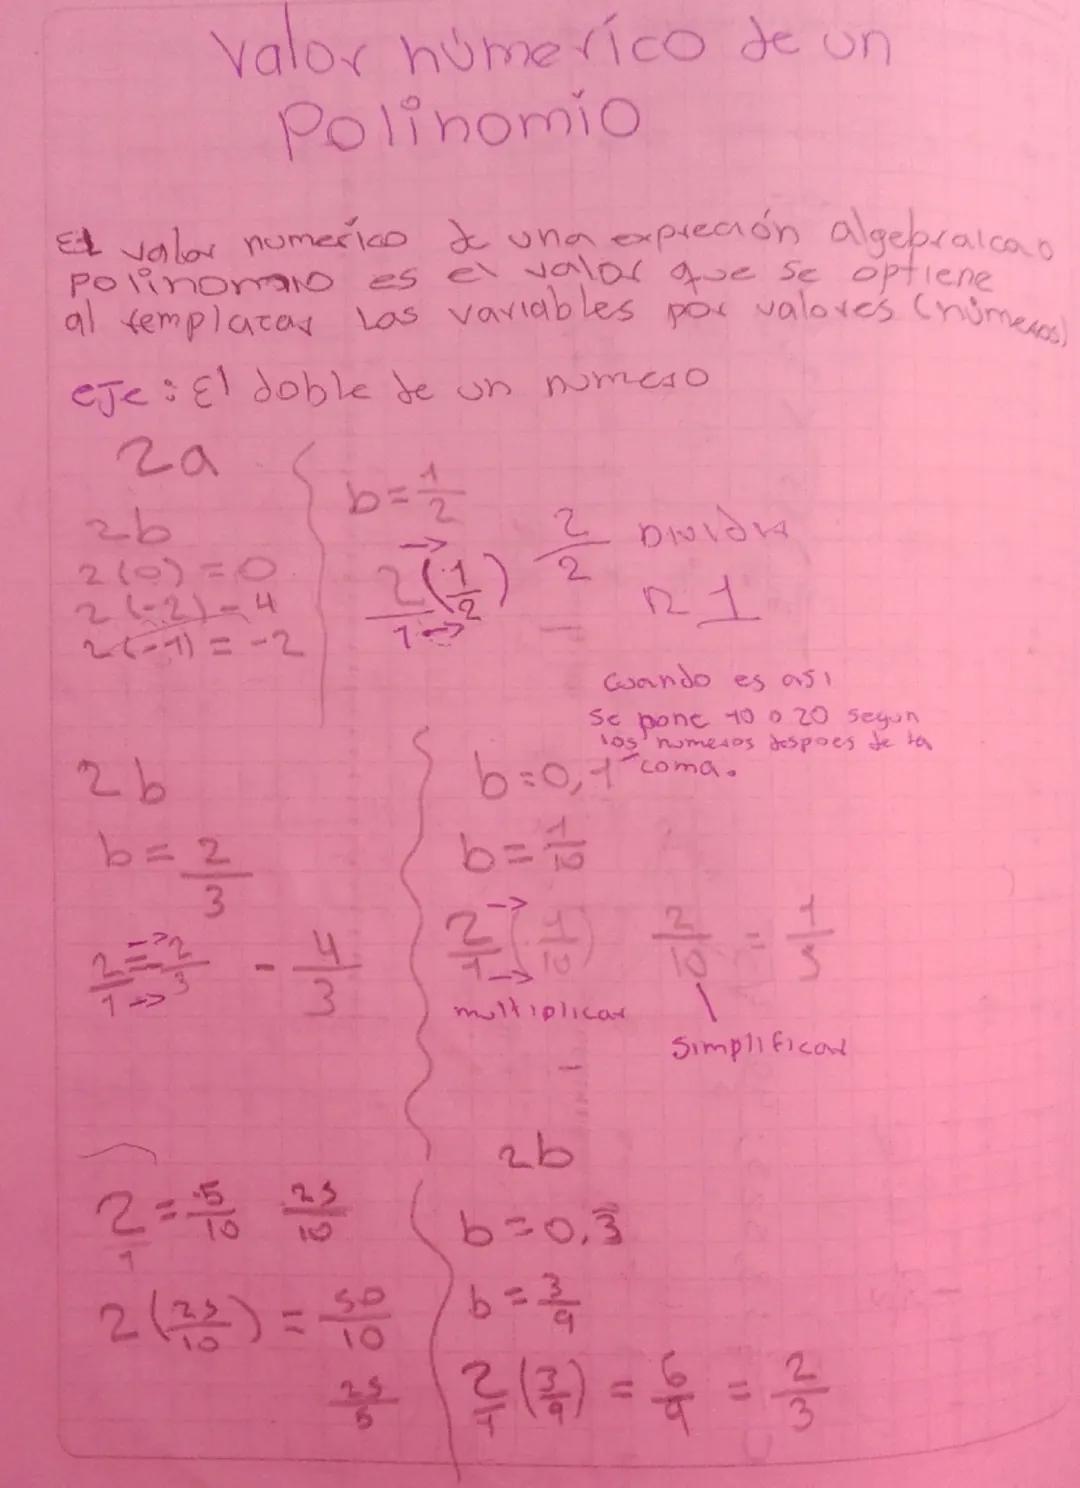 Valor númerico de un
Polinomio
El valor numerico de una expreción algebraica o
polinomio es el valor que se optiene
al templazar las variables por valores (números)
eje: El doble de un numero
2a
2b
2(0) = 0
2(-2) - 4
2(-1) = -2
b = 1/2
2/1 (1/2) 2/2 Dividir
R 1
2b
b = 2/3
2/1 = 2/3 - 4/3
Cuando es asi
se pone 10 o 20 segun
los numeros despoes de la
coma.
b = 0,1
b = 1/10
2/1 (1/10) 2/10 = 1/5
multiplicar
simplificar
2/1 = 5/10 25/10
2(25/10) = 50/10
25/5
2b
b = 0.3̅
b = 3/9
2/1 (3/9) = 6/9 = 2/3